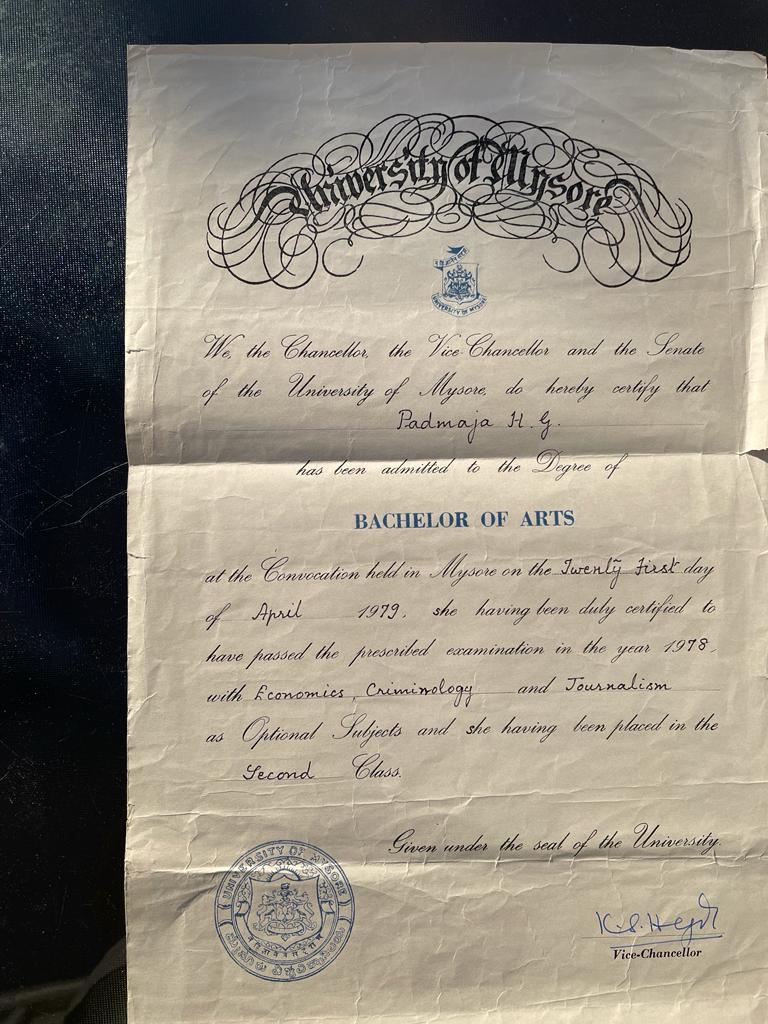 University of Mysore
UNIVERSITY OF MYSORE
We, the Chancellor, the Vice-Chancellor and the Senate
of the University of Mysore, do hereby certify that
Padmaja H. G.
has been admitted to the Degree of
BACHELOR OF ARTS
at the Convocation held in Mysore on the Twenty First day
of April 1979, she having been duly certified to
have passed the prescribed examination in the year 1978,
with Economics, Criminology and Journalism
as Optional Subjects and she having been placed in the
Second Class.
Given under the seal of the University.
UNIVERSITY OF MYSORE
K.S. Hegde
Vice-Chancellor